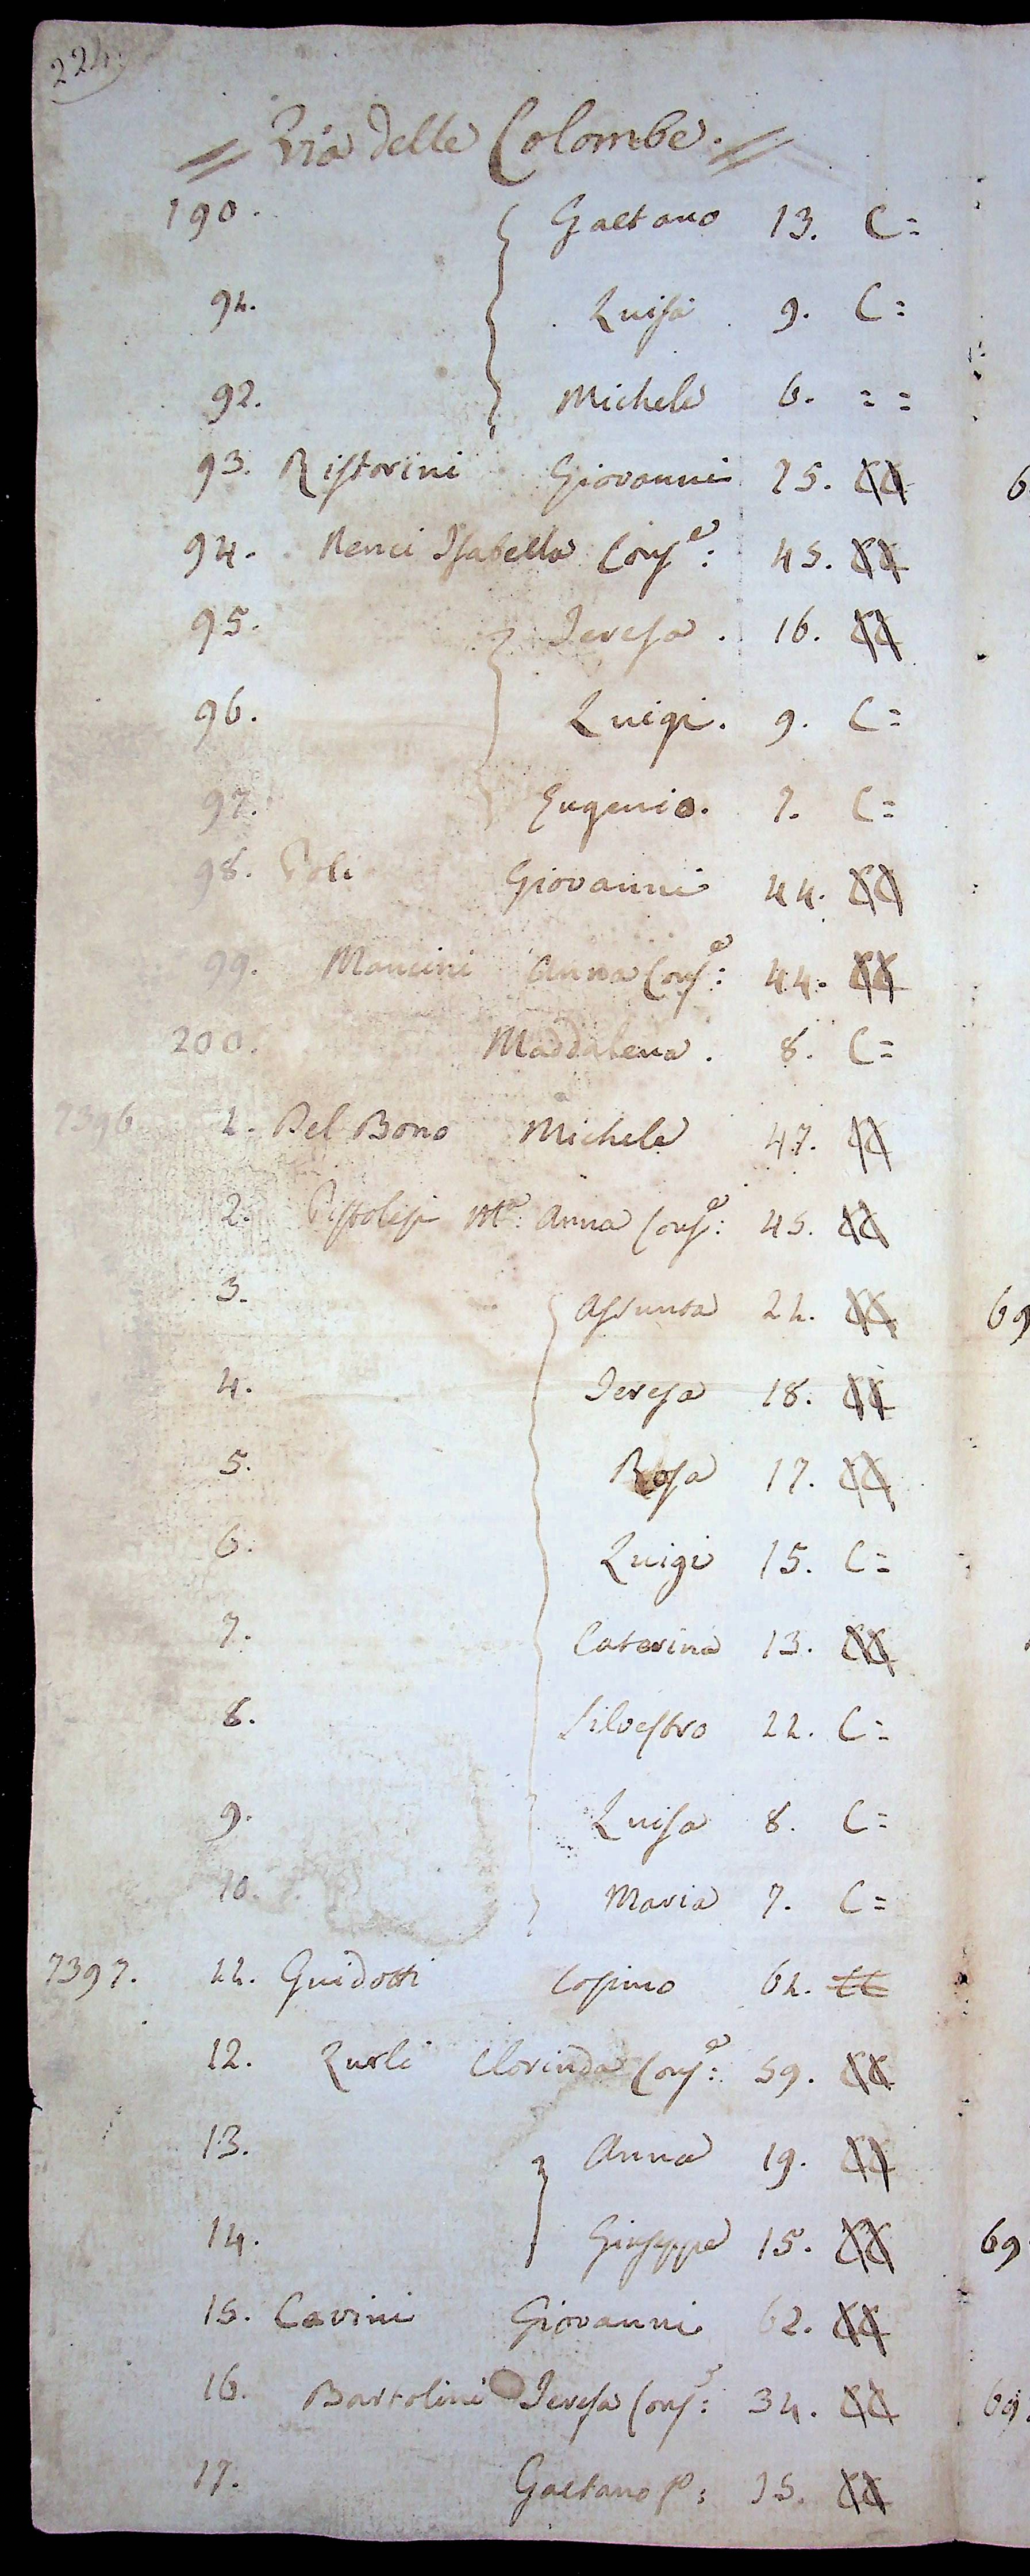 224.
= Via delle Colombe. =
190. Gaetano 13. C=
91. Luisa 9. C=
92. Michele 6. = =
93. Ristorini Giovanni 25. CC
94. Renci Isabella Conse: 45. CC
95. Teresa. 16. CC
96. Luigi. 9. C=
97. Eugenio. 7. C=
98. Poli Giovanni 44. CC
99. Mancini Anna Conse: 44. CC
200. Maddalena. 8. C=
7396 1. Del Bono Michele 47. CC
2. Pistolesi Ma: Anna Conse: 45. CC
3. Assunta 21. CC
4. Teresa 18. CC
5. Rosa 17. CC
6. Luigi 15. C=
7. Caterina 13. CC
8. Silvestro 11. C=
9. Luisa 8. C=
10. Maria 7. C=
7397. 11. Guidotti Cosimo 61. CC
12. Zurli Clorinda Conse: 59. CC
13. Anna 19. CC
14. Giuseppe 15. CC
15. Cavini Giovanni 62. CC
16. Bartolini Teresa Cons: 34. CC
17. Gaetano fo: 15. CC